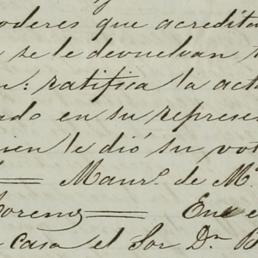 poderes que acredita
se le devuelvan
n: ratifica la act
ado en su represe
ien le dió su vo
Manl. de M.
Moreno = En e
casa el Sor Dn B